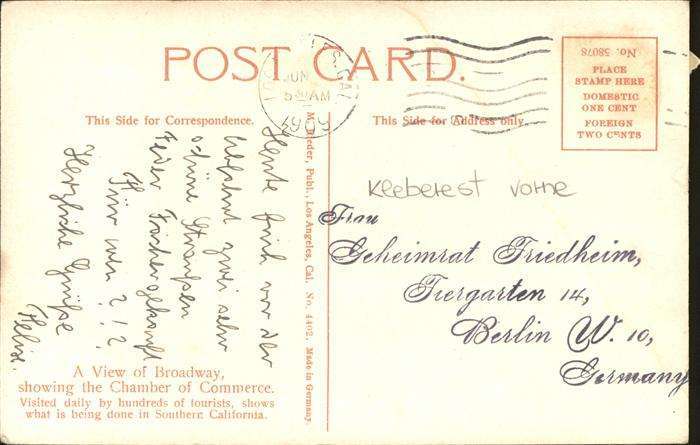 POST CARD.
JUN
5 AM
1909
CAL
No. 58078
PLACE
STAMP HERE
DOMESTIC
ONE CENT
FOREIGN
TWO CENTS
This Side for Correspondence.
This Side for Address only.
Heute früh vor der
Abfahrt zwei sehr
schöne Straußen
Feder Fächer gekauft
Für wen ? ! ?
Herzliche Grüße
M. Rieder, Publ., Los Angeles, Cal. No. 4402. Made in Germany.
Kleberest vorne
Frau
Geheimrat Friedheim,
Tiergarten 14,
Berlin W. 10,
Germany
A View of Broadway,
showing the Chamber of Commerce.
Visited daily by hundreds of tourists, shows
what is being done in Southern California.